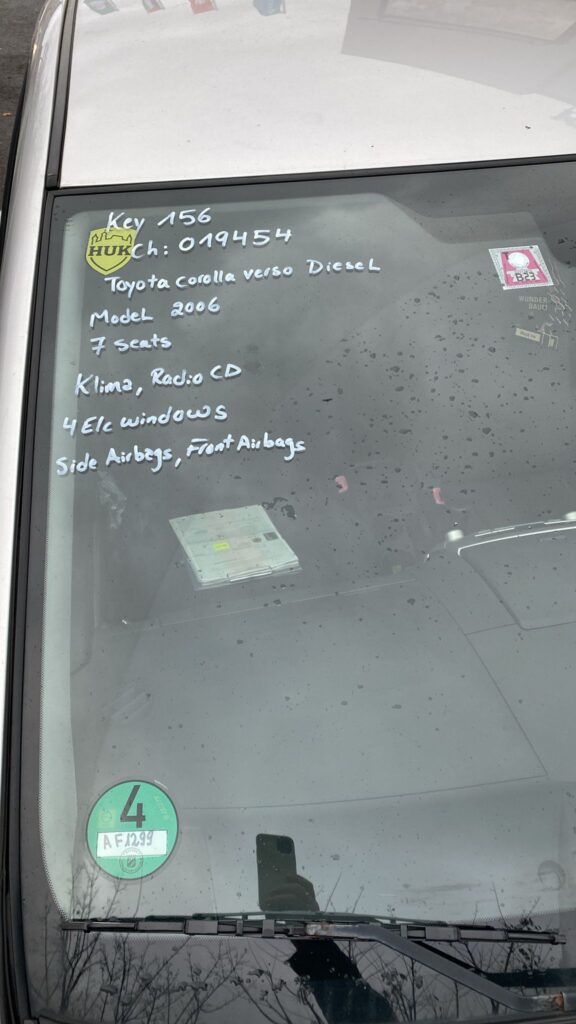 Key 156
HUK
Ch: 019454
Toyota corolla verso Diesel
Model 2006
7 seats
Klima, Radio CD
4 Elc windows
Side Airbegs, Front Airbags
B29
WUNDER
BAUM
4
AF1299